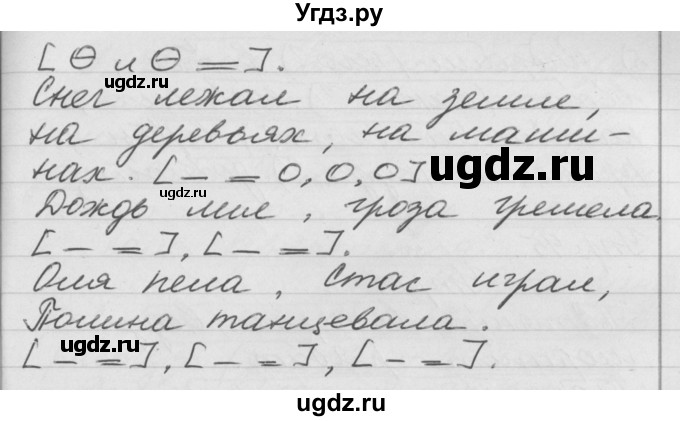 Угдз.ру
[ ⊖ и ⊖ = ].
Снег лежал на земле,
на деревьях, на маши-
нах. [ – = O, O, O ]
Дождь лил, гроза гремела.
[ – = ], [ – = ].
Оля пела, Стас играл,
Полина танцевала.
[ – = ], [ – = ], [ – = ].
ugdz.ru
ugdz.ru
ugdz.ru
ugdz.ru
ugdz.ru
ugdz.ru